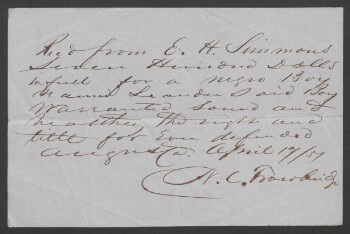 Recd from E. H. Simmons
Seven Hundred Dolls
in full for a negro Boy
named Leander Said Boy
Warranted sound and
healthy the right and
title for Ever defended
Augusta April 17/51
N. C. Trowbridge